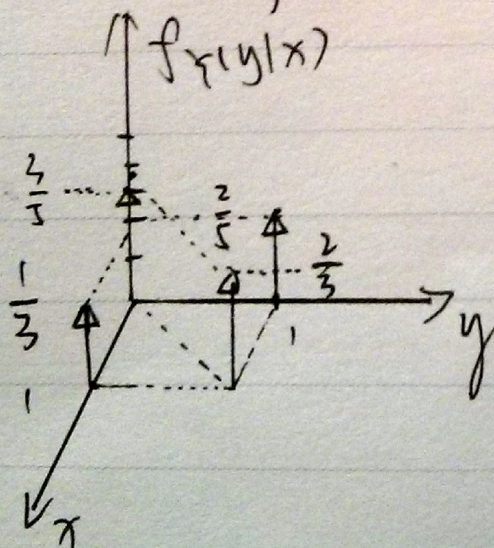 f_Y(y|x)
3/5
2/5
2/3
1/3
1
1
y
x